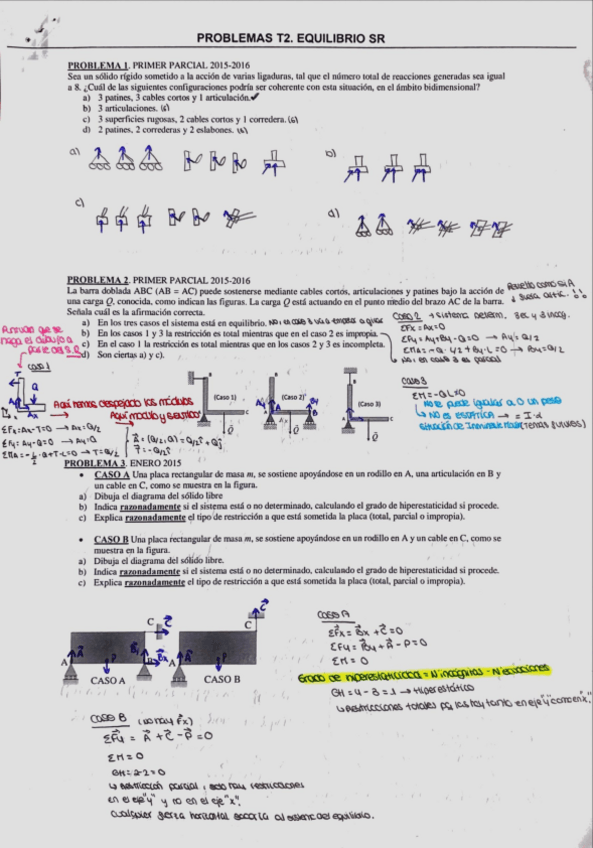 PROBLEMAS T2. EQUILIBRIO SR
PROBLEMA 1. PRIMER PARCIAL 2015-2016
Sea un sólido rígido sometido a la acción de varias ligaduras, tal que el número total de reacciones generadas sea igual
a 8. ¿Cuál de las siguientes configuraciones podría ser coherente con esta situación, en el ámbito bidimensional?
a) 3 patines, 3 cables cortos y 1 articulación.✓
b) 3 articulaciones. (6)
c) 3 superficies rugosas, 2 cables cortos y 1 corredera. (6)
d) 2 patines, 2 correderas y 2 eslabones. (6)
a)
b)
c)
d)
PROBLEMA 2. PRIMER PARCIAL 2015-2016
La barra doblada ABC (AB = AC) puede sostenerse mediante cables cortos, articulaciones y patines bajo la acción de
una carga Q, conocida, como indican las figuras. La carga Q está actuando en el punto medio del brazo AC de la barra.
Señala cuál es la afirmación correcta.
a) En los tres casos el sistema está en equilibrio.
b) En los casos 1 y 3 la restricción es total mientras que en el caso 2 es impropia.
c) En el caso 1 la restricción es total mientras que en los casos 2 y 3 es incompleta.
d) Son ciertas a) y c).
Caso 2
ΣFx = Ax = 0
ΣFy = Ay + By - Q = 0 → Ay = Q/2
ΣMA = -Q · L/2 + By · L = 0 → By = Q/2
caso 1
T
Q
Ax
Aquí hemos despejado los módulos
Aquí modulo y sentido
(Caso 1)
(Caso 2)
(Caso 3)
B
C
Q
Caso 3
No puede igualar a 0 un peso
ΣFx = Ax - T = 0 → Ax = Q/2
ΣFy = Ay - Q = 0 → Ay = Q
PROBLEMA 3. ENERO 2015
• CASO A Una placa rectangular de masa m, se sostiene apoyándose en un rodillo en A, una articulación en B y
un cable en C, como se muestra en la figura.
a) Dibuja el diagrama del sólido libre
b) Indica razonadamente si el sistema está o no determinado, calculando el grado de hiperestaticidad si procede.
c) Explica razonadamente el tipo de restricción a que está sometida la placa (total, parcial o impropia).
• CASO B Una placa rectangular de masa m, se sostiene apoyándose en un rodillo en A y un cable en C, como se
muestra en la figura.
a) Dibuja el diagrama del sólido libre.
b) Indica razonadamente si el sistema está o no determinado, calculando el grado de hiperestaticidad si procede.
c) Explica razonadamente el tipo de restricción a que está sometida la placa (total, parcial o impropia).
C
A
P
B
Bx
CASO A
C
A
P
CASO B
CASO A
ΣFx = Bx + C = 0
ΣFy = By + A - P = 0
ΣM = 0
Grado de hiperestaticidad = Nºincógnitas - Nºecuaciones
GH = 4 - 3 = 1 → Hiperestático
CASO B (no hay Fx)
ΣFy = A + C - P = 0
ΣM = 0
GH = 2-2 = 0
↳ Restricción parcial, solo hay restricciones
en el eje "y" y no en el eje "x".
Cualquier fuerza horizontal sacaría al sistema del equilibrio.